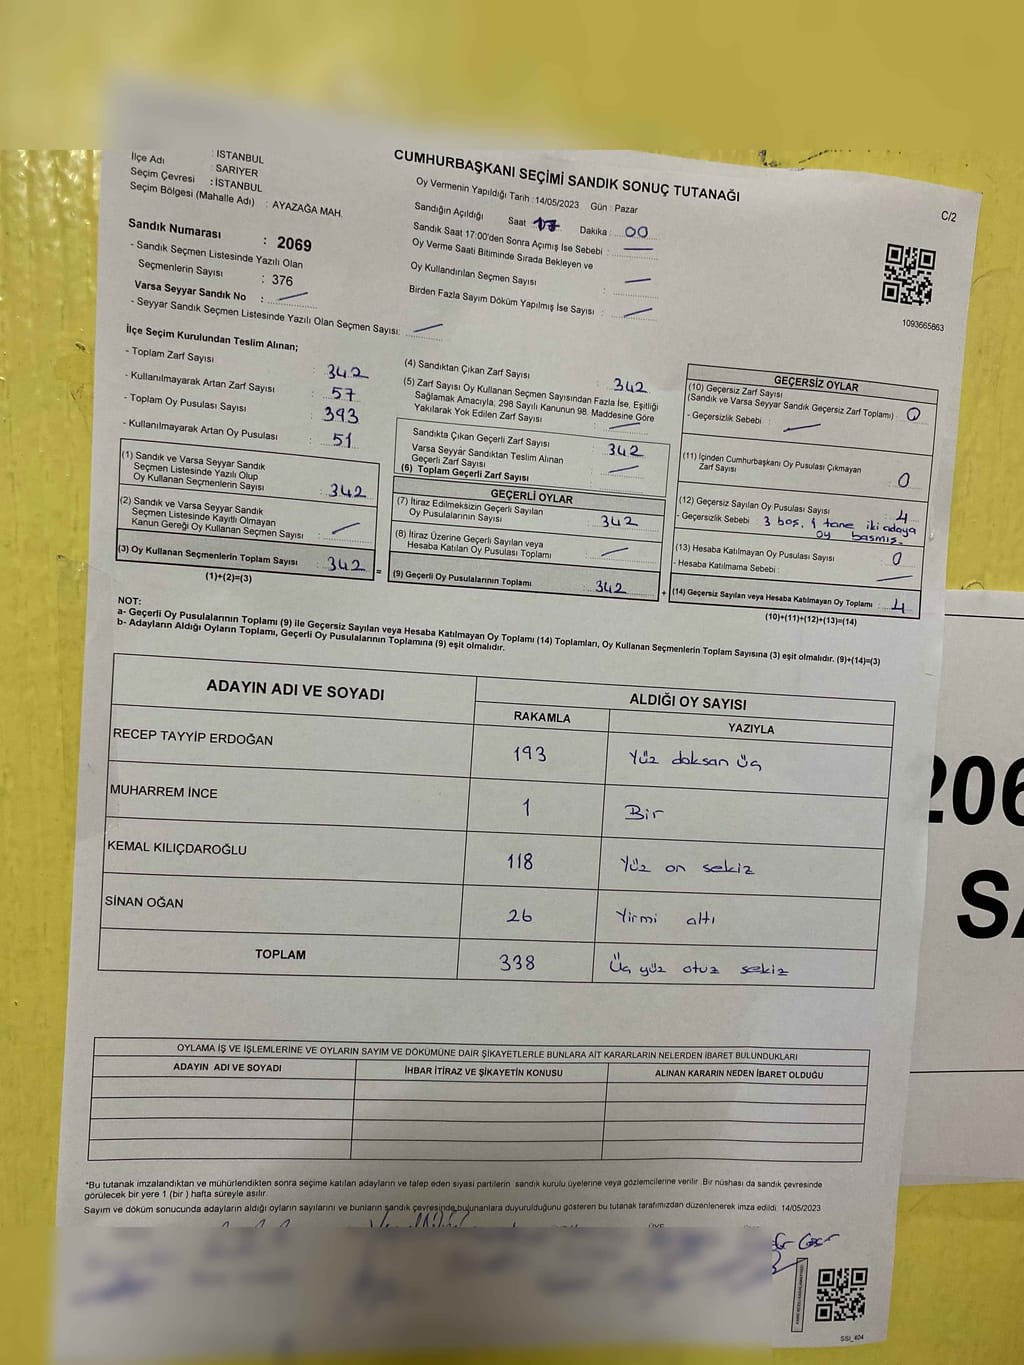 İlçe Adı : İSTANBUL
Seçim Çevresi : SARIYER
Seçim Bölgesi (Mahalle Adı) : İSTANBUL
: AYAZAĞA MAH.
CUMHURBAŞKANI SEÇİMİ SANDIK SONUÇ TUTANAĞI
C/2
Oy Vermenin Yapıldığı Tarih : 14/05/2023 Gün : Pazar
Sandığın Açıldığı Saat 17 Dakika : 00
Sandık Saat 17:00'den Sonra Açımış İse Sebebi :
Oy Verme Saati Bitiminde Sırada Bekleyen ve
Oy Kullandırılan Seçmen Sayısı :
Birden Fazla Sayım Döküm Yapılmış İse Sayısı :
1093665863
Sandık Numarası : 2069
- Sandık Seçmen Listesinde Yazılı Olan
Seçmenlerin Sayısı : 376
Varsa Seyyar Sandık No :
- Seyyar Sandık Seçmen Listesinde Yazılı Olan Seçmen Sayısı:
İlçe Seçim Kurulundan Teslim Alınan;
- Toplam Zarf Sayısı : 342
- Kullanılmayarak Artan Zarf Sayısı : 57
- Toplam Oy Pusulası Sayısı : 393
- Kullanılmayarak Artan Oy Pusulası : 51
(1) Sandık ve Varsa Seyyar Sandık
Seçmen Listesinde Yazılı Olup
Oy Kullanan Seçmenlerin Sayısı : 342
(2) Sandık ve Varsa Seyyar Sandık
Seçmen Listesinde Kayıtlı Olmayan
Kanun Gereği Oy Kullanan Seçmen Sayısı :
(3) Oy Kullanan Seçmenlerin Toplam Sayısı : 342 =
(1)+(2)=(3)
(4) Sandıktan Çıkan Zarf Sayısı : 342
(5) Zarf Sayısı Oy Kullanan Seçmen Sayısından Fazla İse, Eşitliği
Sağlamak Amacıyla, 298 Sayılı Kanunun 98. Maddesine Göre
Yakılarak Yok Edilen Zarf Sayısı :
Sandıkta Çıkan Geçerli Zarf Sayısı : 342
Varsa Seyyar Sandıktan Teslim Alınan
Geçerli Zarf Sayısı :
(6) Toplam Geçerli Zarf Sayısı
GEÇERLİ OYLAR
(7) İtiraz Edilmeksizin Geçerli Sayılan
Oy Pusulalarının Sayısı : 342
(8) İtiraz Üzerine Geçerli Sayılan veya
Hesaba Katılan Oy Pusulası Toplamı :
(9) Geçerli Oy Pusulalarının Toplamı : 342 +
GEÇERSİZ OYLAR
(10) Geçersiz Zarf Sayısı
(Sandık ve Varsa Seyyar Sandık Geçersiz Zarf Toplamı) : 0
- Geçersizlik Sebebi :
(11) İçinden Cumhurbaşkanı Oy Pusulası Çıkmayan
Zarf Sayısı : 0
(12) Geçersiz Sayılan Oy Pusulası Sayısı : 4
- Geçersizlik Sebebi : 3 boş, 1 tane iki adaya
oy basmış.
(13) Hesaba Katılmayan Oy Pusulası Sayısı : 0
- Hesaba Katılmama Sebebi :
(14) Geçersiz Sayılan veya Hesaba Katılmayan Oy Toplamı : 4
(10)+(11)+(12)+(13)=(14)
NOT:
a- Geçerli Oy Pusulalarının Toplamı (9) ile Geçersiz Sayılan veya Hesaba Katılmayan Oy Toplamı (14) Toplamları, Oy Kullanan Seçmenlerin Toplam Sayısına (3) eşit olmalıdır. (9)+(14)=(3)
b- Adayların Aldığı Oyların Toplamı, Geçerli Oy Pusulalarının Toplamına (9) eşit olmalıdır.
ADAYIN ADI VE SOYADI
ALDIĞI OY SAYISI
RAKAMLA YAZIYLA
RECEP TAYYİP ERDOĞAN 193 Yüz doksan üç
MUHARREM İNCE 1 Bir
KEMAL KILIÇDAROĞLU 118 Yüz on sekiz
SİNAN OĞAN 26 Yirmi altı
TOPLAM 338 Üç yüz otuz sekiz
OYLAMA İŞ VE İŞLEMLERİNE VE OYLARIN SAYIM VE DÖKÜMÜNE DAİR ŞİKAYETLERLE BUNLARA AİT KARARLARIN NELERDEN İBARET BULUNDUKLARI
ADAYIN ADI VE SOYADI İHBAR İTİRAZ VE ŞİKAYETİN KONUSU ALINAN KARARIN NEDEN İBARET OLDUĞU
*Bu tutanak imzalandıktan ve mühürlendikten sonra seçime katılan adayların ve talep eden siyasi partilerin sandık kurulu üyelerine veya gözlemcilerine verilir. Bir nüshası da sandık çevresinde
görülecek bir yere 1 (bir ) hafta süreyle asılır.
Sayım ve döküm sonucunda adayların aldığı oyların sayılarını ve bunların sandık çevresinde bulunanlara duyurulduğunu gösteren bu tutanak tarafımızdan düzenlenerek imza edildi. 14/05/2023
ÜYE
SSI_404
206
SA